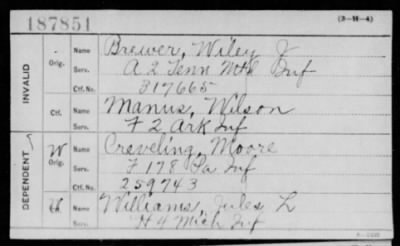 187851 (3-H-4)
INVALID
Orig. Name Brewer, Wiley J
Serv. A 2 Tenn Mtd Inf
Ctf. No. 317665
Ctf. Name Manus, Wilson
Serv. F 2 Ark Inf
DEPENDENT
W Orig. Name Creveling, Moore
Serv. F 178 Pa Inf
Ctf. No. 259743
W Ctf. Name Williams, Jules L
Serv. H 4 Mich Inf